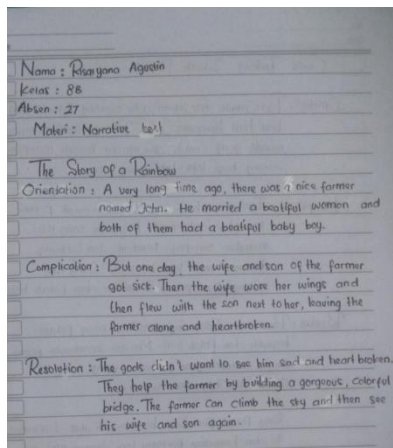 Nama : Risaryana Agustin
Kelas : 8B
Absen : 27
Materi : Narrative text
The Story of a Rainbow
Orientation : A very long time ago, there was a nice farmer
named John. He married a beatiful women and
both of them had a beatiful baby boy.
Complication : But one day, the wife and son of the farmer
got sick. Then the wife wore her wings and
then flew with the son next to her, leaving the
farmer alone and heartbroken.
Resolution : The gods didn't want to see him sad and heart broken.
They help the farmer by building a gorgeous, colorful
bridge. The farmer can climb the sky and then see
his wife and son again.